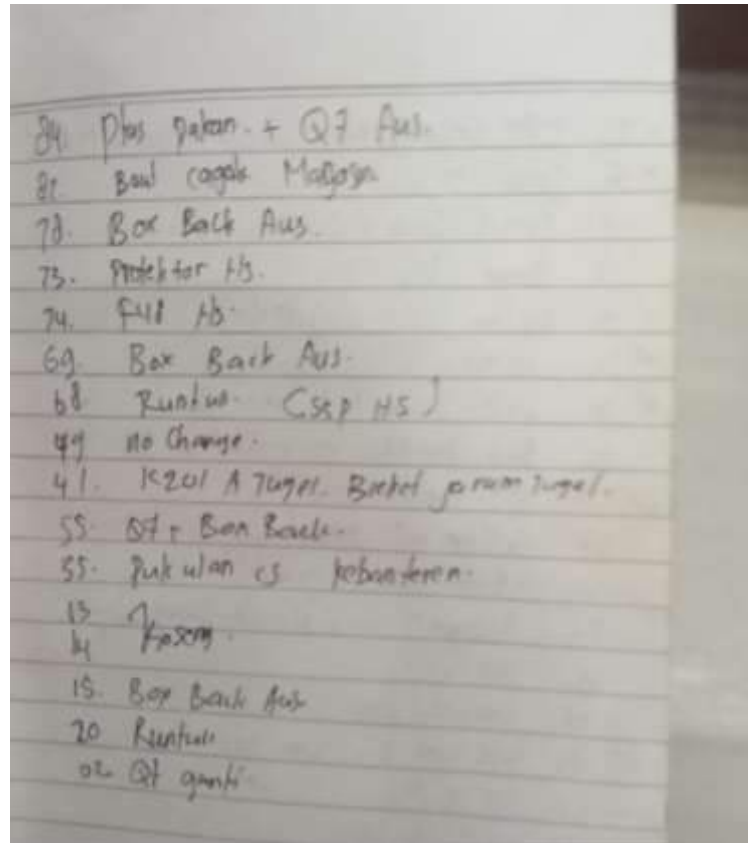 84 Plas Pakan + Q7 Aus.
82 Baut
78. Box Back Aus.
73. Protektor Hs.
74. Full Hs.
69. Box Back Aus.
68 Runtus. (Scp HS)
49 no Change.
41. K201 A Tugel. Breket jarum tugel.
55 Q7 + Box Back.
55. Pukulan cs kebanteren.
13
14 Koseng.
15. Box Back Aus
20 Runtus
02 Q7 ganti.